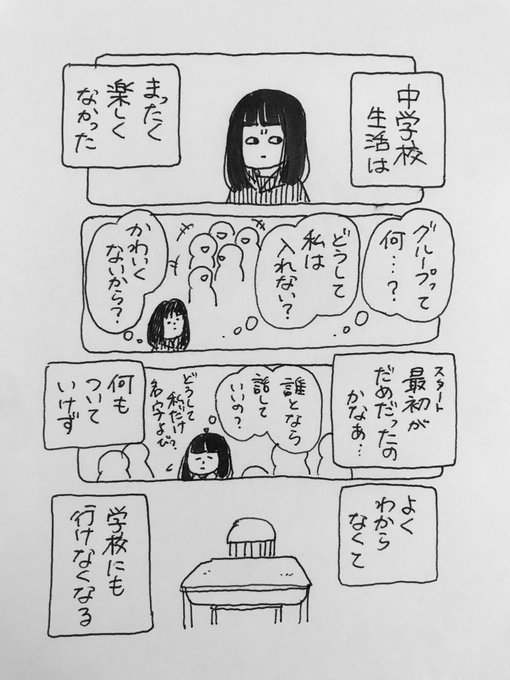 中学校
生活は
まったく
楽しく
なかった
グループって
何…？
どうして
私は
入れない？
かわいく
ないから？
スタート
最初が
だめだったの
かなぁ…
誰となら
話して
いいの？
どうして
私だけ
名字よび？
何も
ついて
いけず
よく
わから
なくて
学校にも
行けなくなる